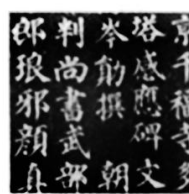 京千福寺
塔感應碑文
岑勛撰 朝
判尚書武部
郎琅邪顏真